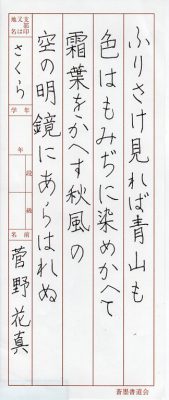 ふりさけ見れば青山も
色はもみぢに染めかへて
霜葉をかへす秋風の
空の明鏡にあらはれぬ
支部印又は地名
さくら
学年
年
段級
名前
菅野花真
蒼墨書道会